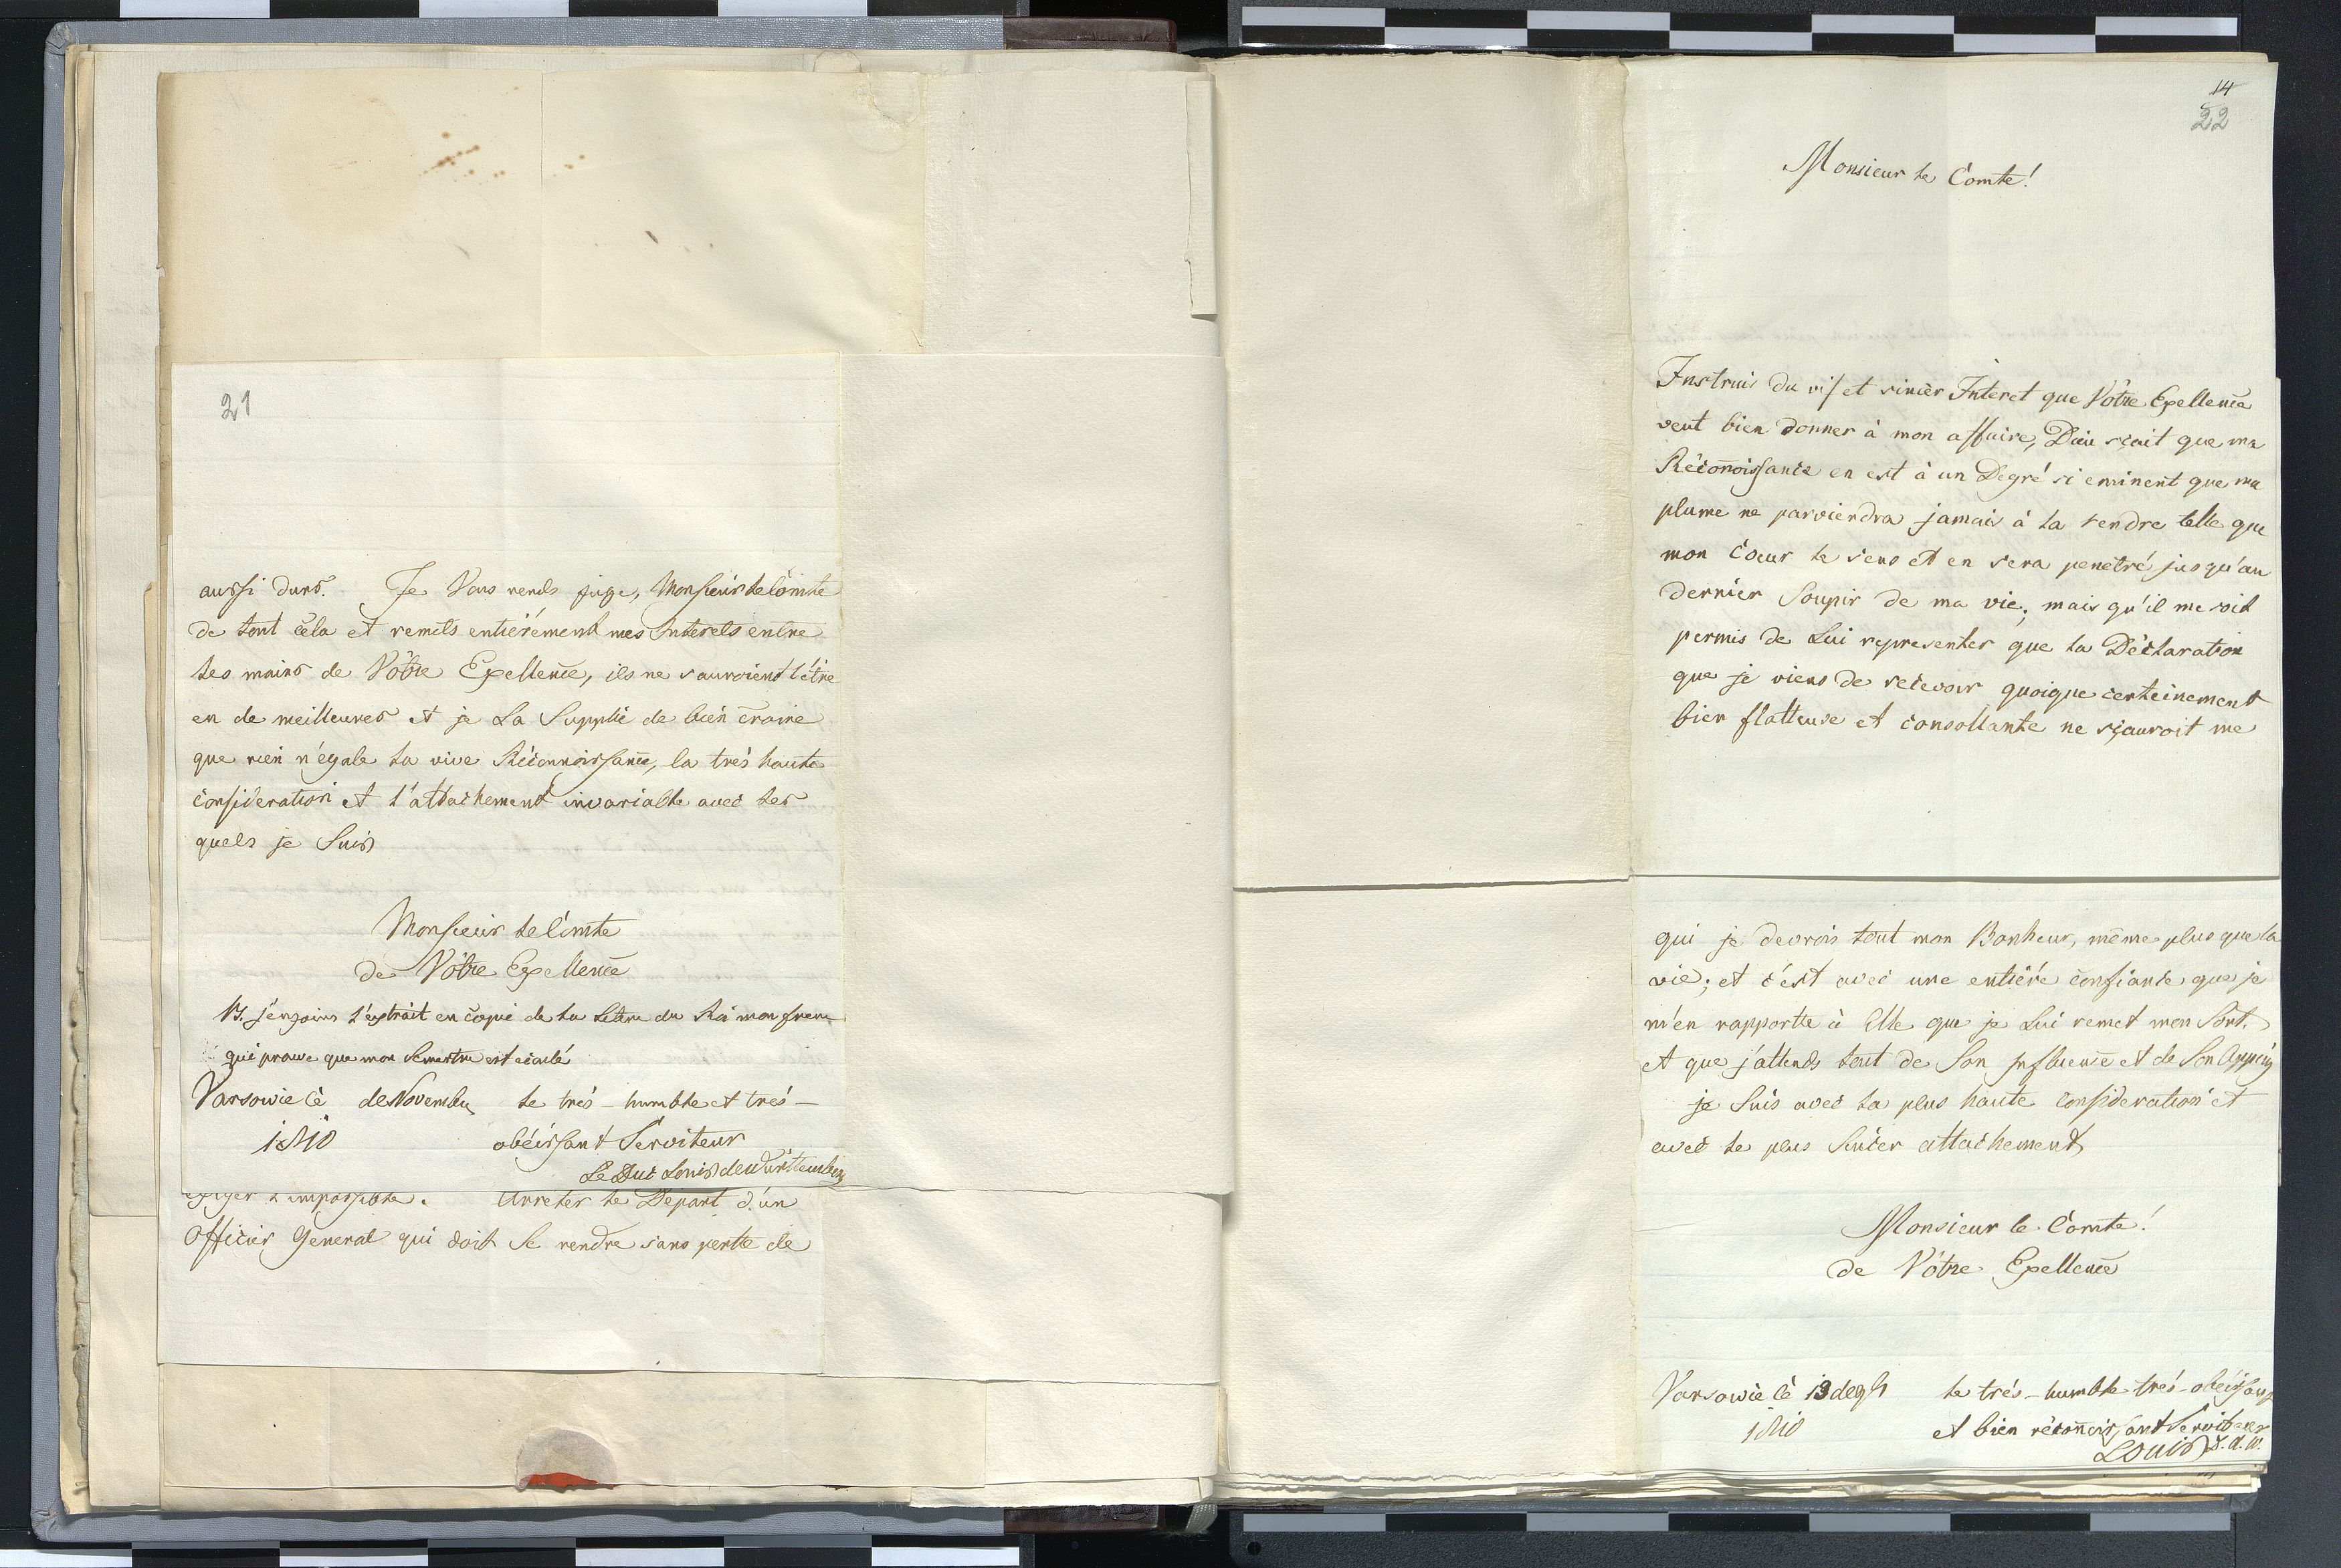 21
aussi durs. Je Vous rends juge, Monsieur le Comte
de tout cela et remets entiérement mes Interets entre
les mains de Vôtre Exellence, ils ne sauroient l'être
en de meilleures et je La Supplie de bien croire
que rien n'égale la vive Réconnoissance, la très haute
consideration et l'attachement invariable avec les
quels je Suis
Monsieur le Comte
de Vôtre Exellence
j'enjoins l'extrait en copie de la lettre du Roi mon frere
qui prouve que mon Semestre est écoulé
Varsowie cè de Novembre le trés-humble et trés-
1810 obéissant Serviteur
Le Duc Louis de Württemberg
exiger l'impossible. Arreter le Depart d'un
Officier General qui doit Se rendre sans perte de
14
22
Monsieur le Comte!
Instruis du vif et sincèr Interet que Vôtre Exellence
veut bien donner à mon affaire, Dieu sçait que ma
Réconnoissance en est à un Degré si eminent que ma
plume ne parviendra jamais à la rendre telle que
mon Coeur le sens et en sera penetré jusqu'au
dernier Soupir de ma vie; mais qu'il me soit
permis de Lui representer que la Déclaration
que je viens de recevoir quoique certeinement
bien flatteuse et consollante ne sçauroit me
qui je devrois tout mon Bonheur, même plus que la
vie; et c'est avec une entiére confiance que je
m'en rapporte à Elle que je Lui remet mon Sort,
et que j'attends tout de Son Influence et de Son Appui,
je Suis avec la plus haute consideration et
avec le plus Sincer attachement
Monsieur le Comte!
de Vôtre Exellence
Varsowie cè 13 de le trés-humble trés-obéissant
1810 et bien réconnoissant Serviteur
Louis d. d. W.